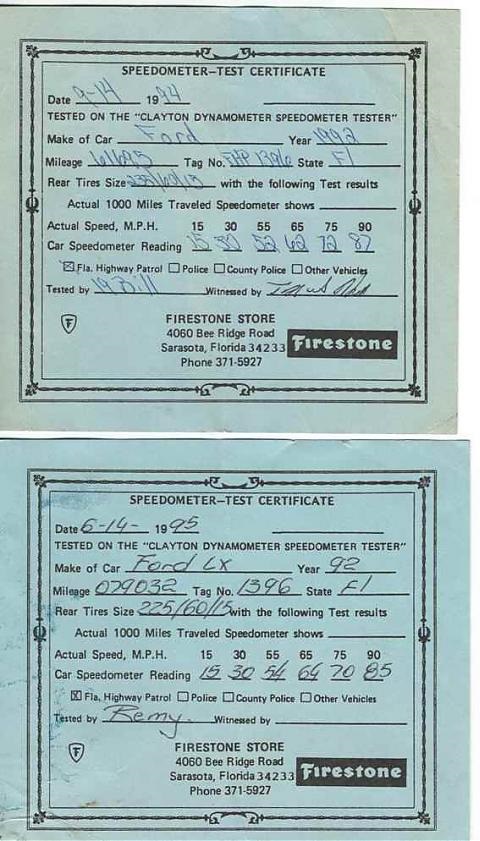 SPEEDOMETER—TEST CERTIFICATE
Date 9-14 1994
TESTED ON THE "CLAYTON DYNAMOMETER SPEEDOMETER TESTER"
Make of Car Ford Year 1992
Mileage 61695 Tag No. FHP 1396 State Fl
Rear Tires Size 225/60/15 with the following Test results
Actual 1000 Miles Traveled Speedometer shows
Actual Speed, M.P.H. 15 30 55 65 75 90
Car Speedometer Reading 15 30 52 62 72 87
☒ Fla. Highway Patrol ☐ Police ☐ County Police ☐ Other Vehicles
Tested by Bill Witnessed by
FIRESTONE STORE
4060 Bee Ridge Road
Sarasota, Florida 34233 Firestone
Phone 371-5927
SPEEDOMETER—TEST CERTIFICATE
Date 6-14- 1995
TESTED ON THE "CLAYTON DYNAMOMETER SPEEDOMETER TESTER"
Make of Car Ford LX Year 92
Mileage 079032 Tag No. 1396 State Fl
Rear Tires Size 225/60/15 with the following Test results
Actual 1000 Miles Traveled Speedometer shows
Actual Speed, M.P.H. 15 30 55 65 75 90
Car Speedometer Reading 15 30 54 64 70 85
☒ Fla. Highway Patrol ☐ Police ☐ County Police ☐ Other Vehicles
Tested by Remy. Witnessed by
FIRESTONE STORE
4060 Bee Ridge Road
Sarasota, Florida 34233 Firestone
Phone 371-5927